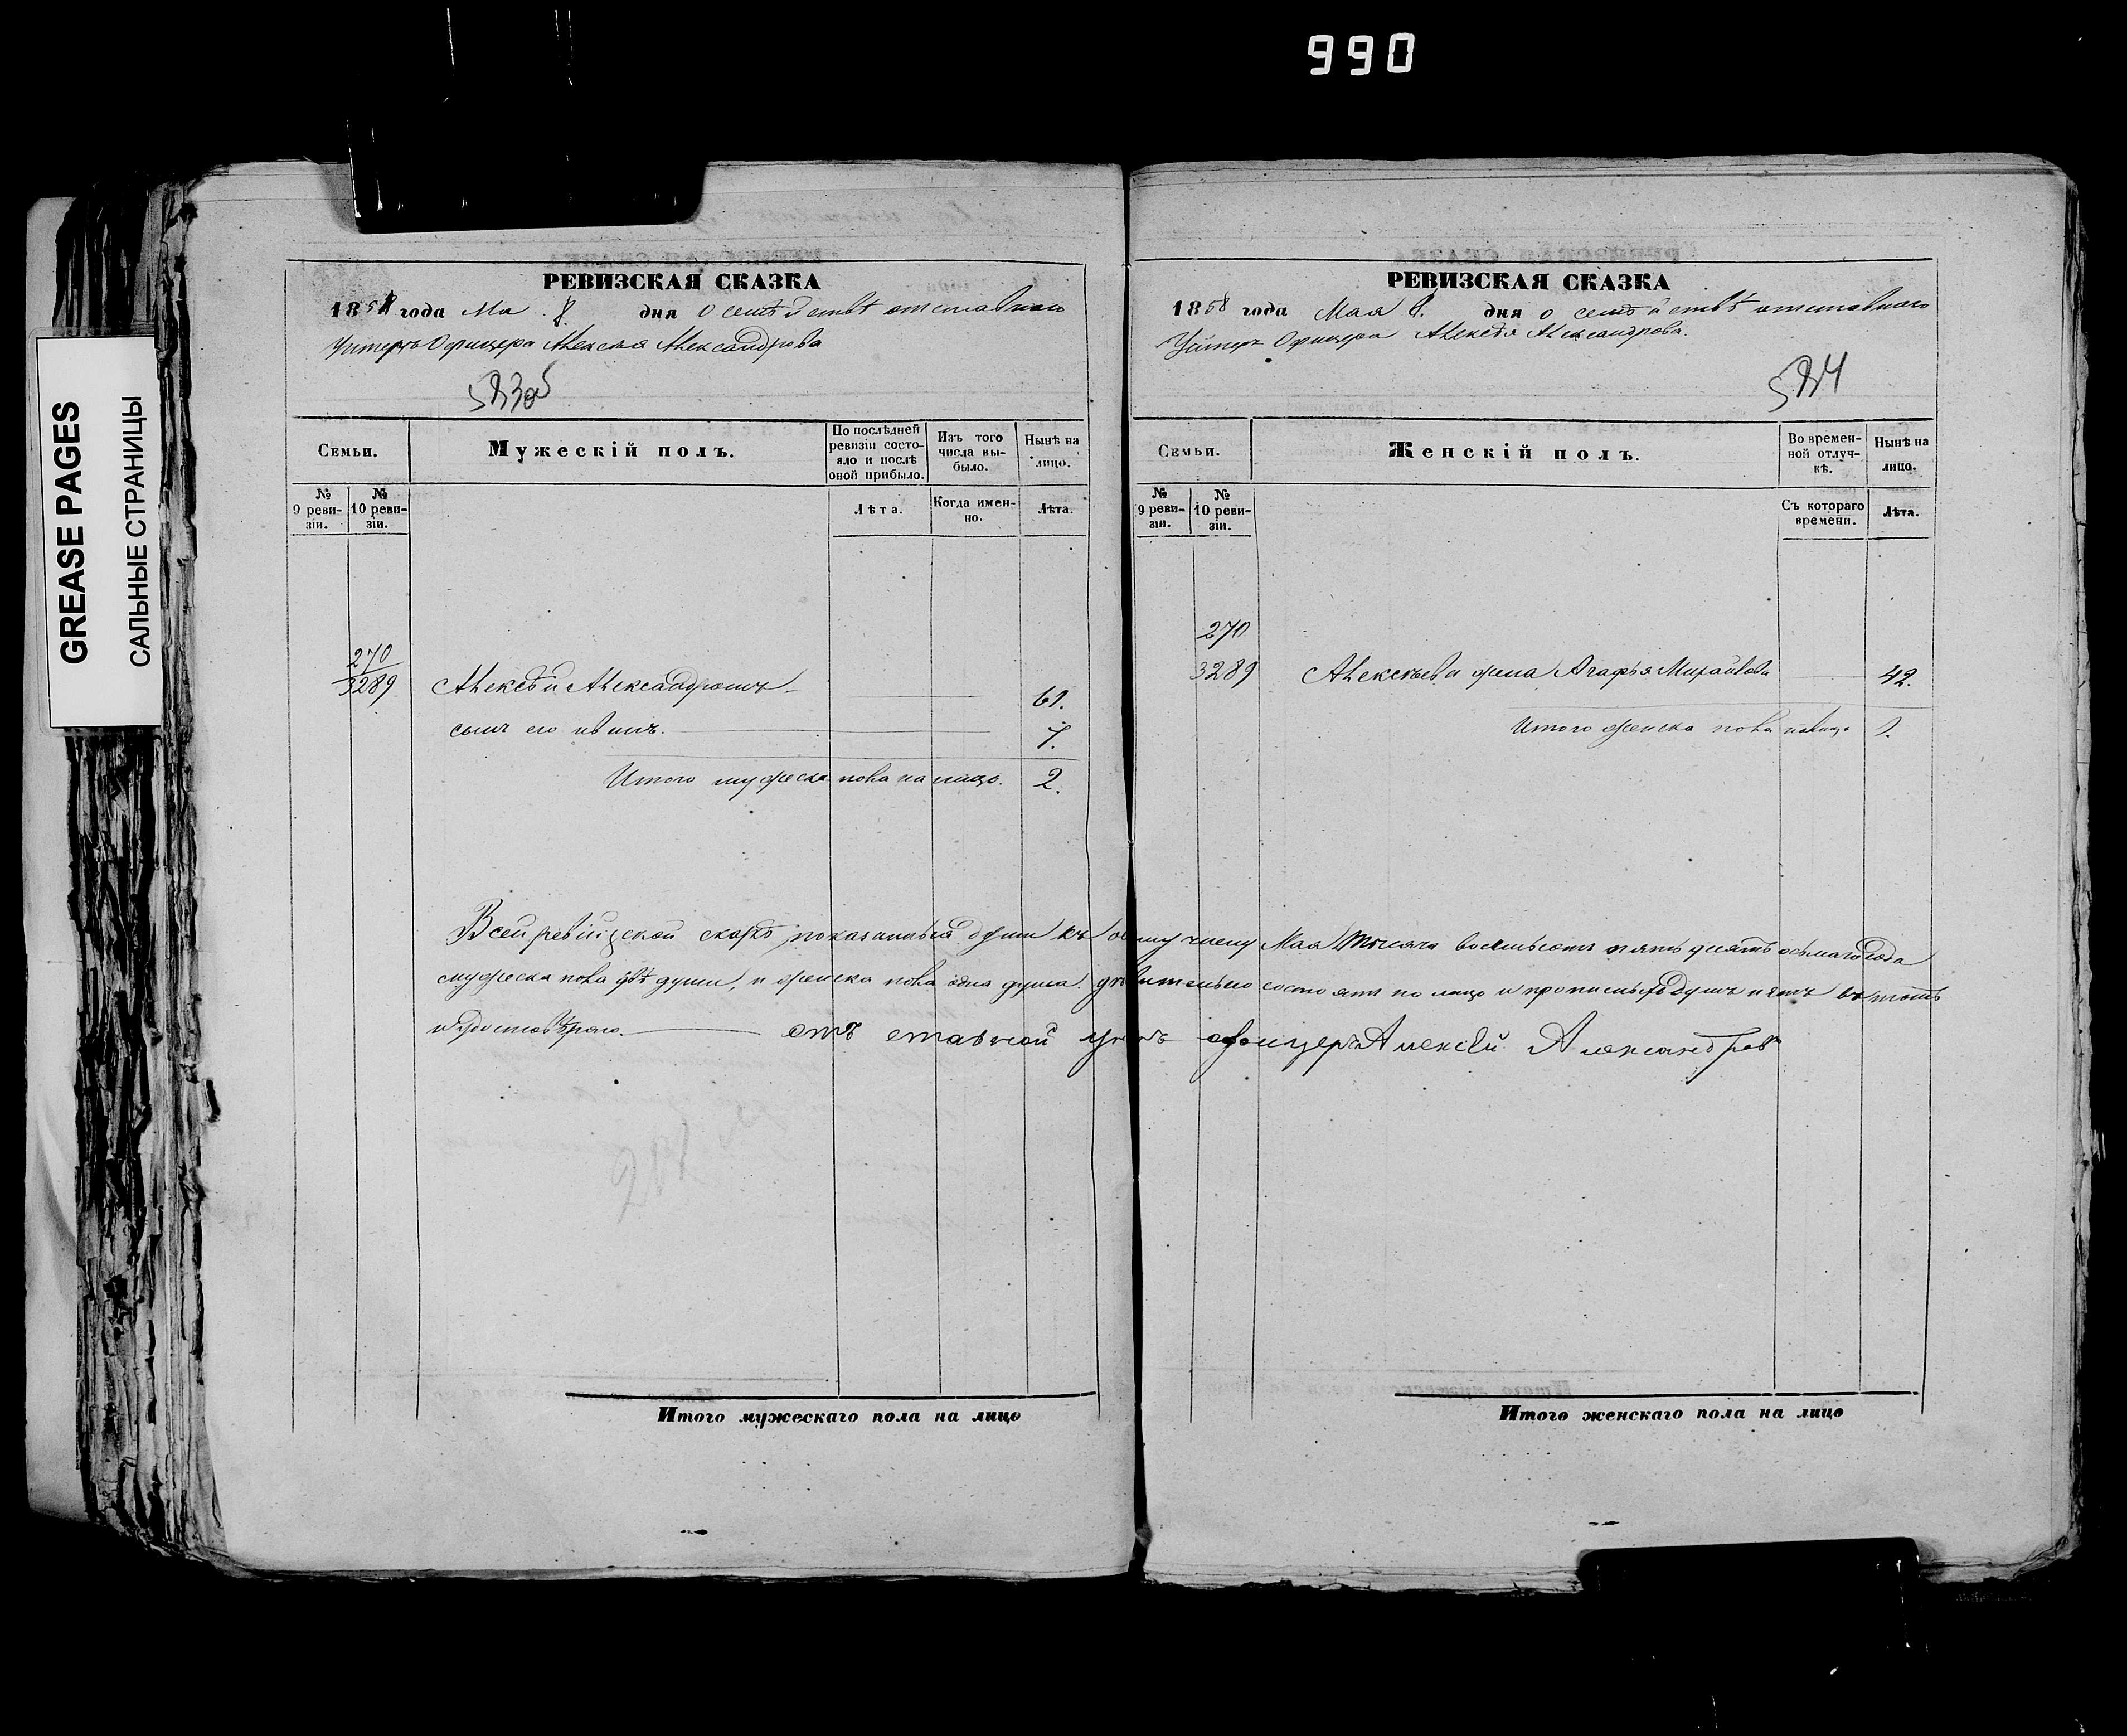 990
GREASE PAGES
САЛЬНЫЕ СТРАНИЦЫ
РЕВИЗСКАЯ СКАЗКА
1858 года Ма 8. дня о семѣйствѣ отставнаго
Унтеръ Офицера Алексѣя Александрова
583об
Семьи.
Мужескій полъ.
По послѣдней ревизіи состо-
яло и послѣ
оной прибыло.
Изъ того
числа вы-
было.
Нынѣ на
лицо.
№
9 реви-
зіи.
№
10 реви-
зіи.
Лѣта.
Когда имен-
но.
Лѣта.
270
3289
Алексѣй Александровъ
61.
сынъ его иванъ.
7.
Итого мужеска пола на лицо. 2.
РЕВИЗСКАЯ СКАЗКА
1858 года Мая 8. дня о семѣйствѣ отставнаго
Унтеръ Офицера Алексѣя Александрова.
584
Семьи.
Женскій полъ.
Во времен-
ной отлуч-
кѣ.
Нынѣ на
лицо.
№
9 реви-
зіи.
№
10 реви-
зіи.
Съ котораго
времени.
Лѣта.
270
3289 Алексѣева жена Агафья Михайлова 42.
Итого женска пола налицо 1.
Всей ревизской скаскѣ показанныя души къ осьмому числу Мая тысяча восемьсотъ пятьдесятъ осьмаго года
мужеска пола двѣ души, и женска пола одна душа. дѣйствительно состоятъ по лицо и
отъ ставной унтеръ офицеръ Алексѣй Александровъ
Итого мужескаго пола на лицо
Итого женскаго пола на лицо